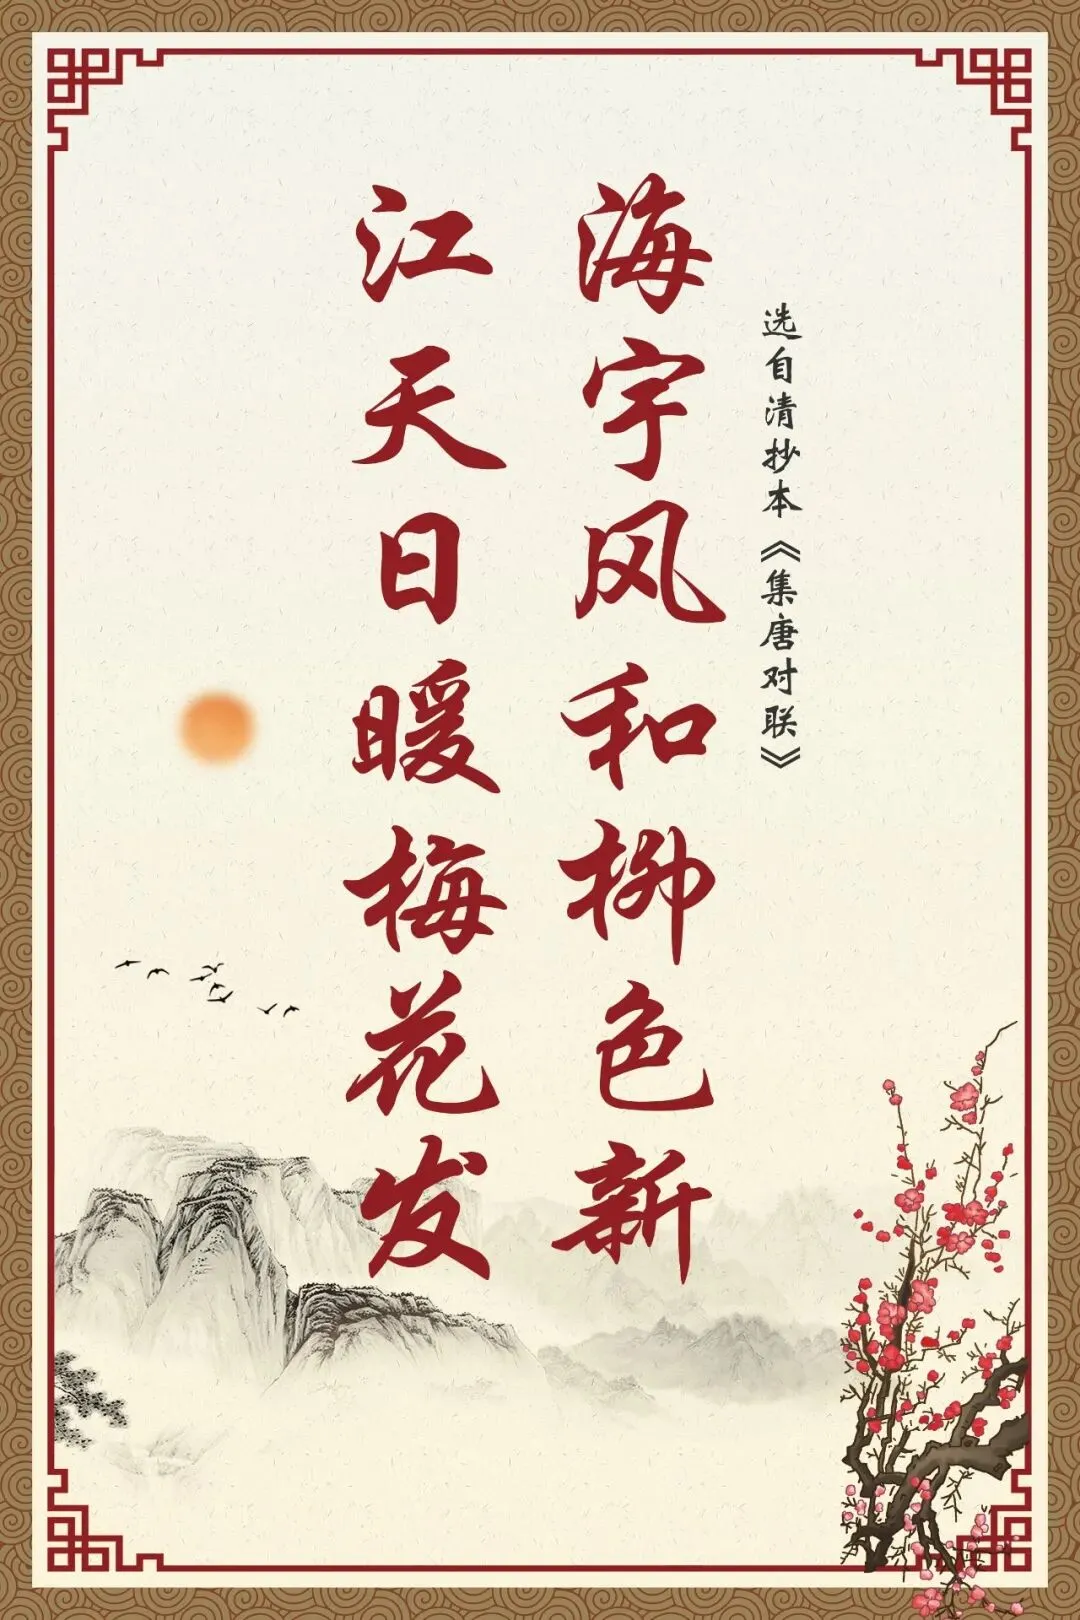 选自清抄本《集唐对联》
海宇风和柳色新
江天日暖梅花发